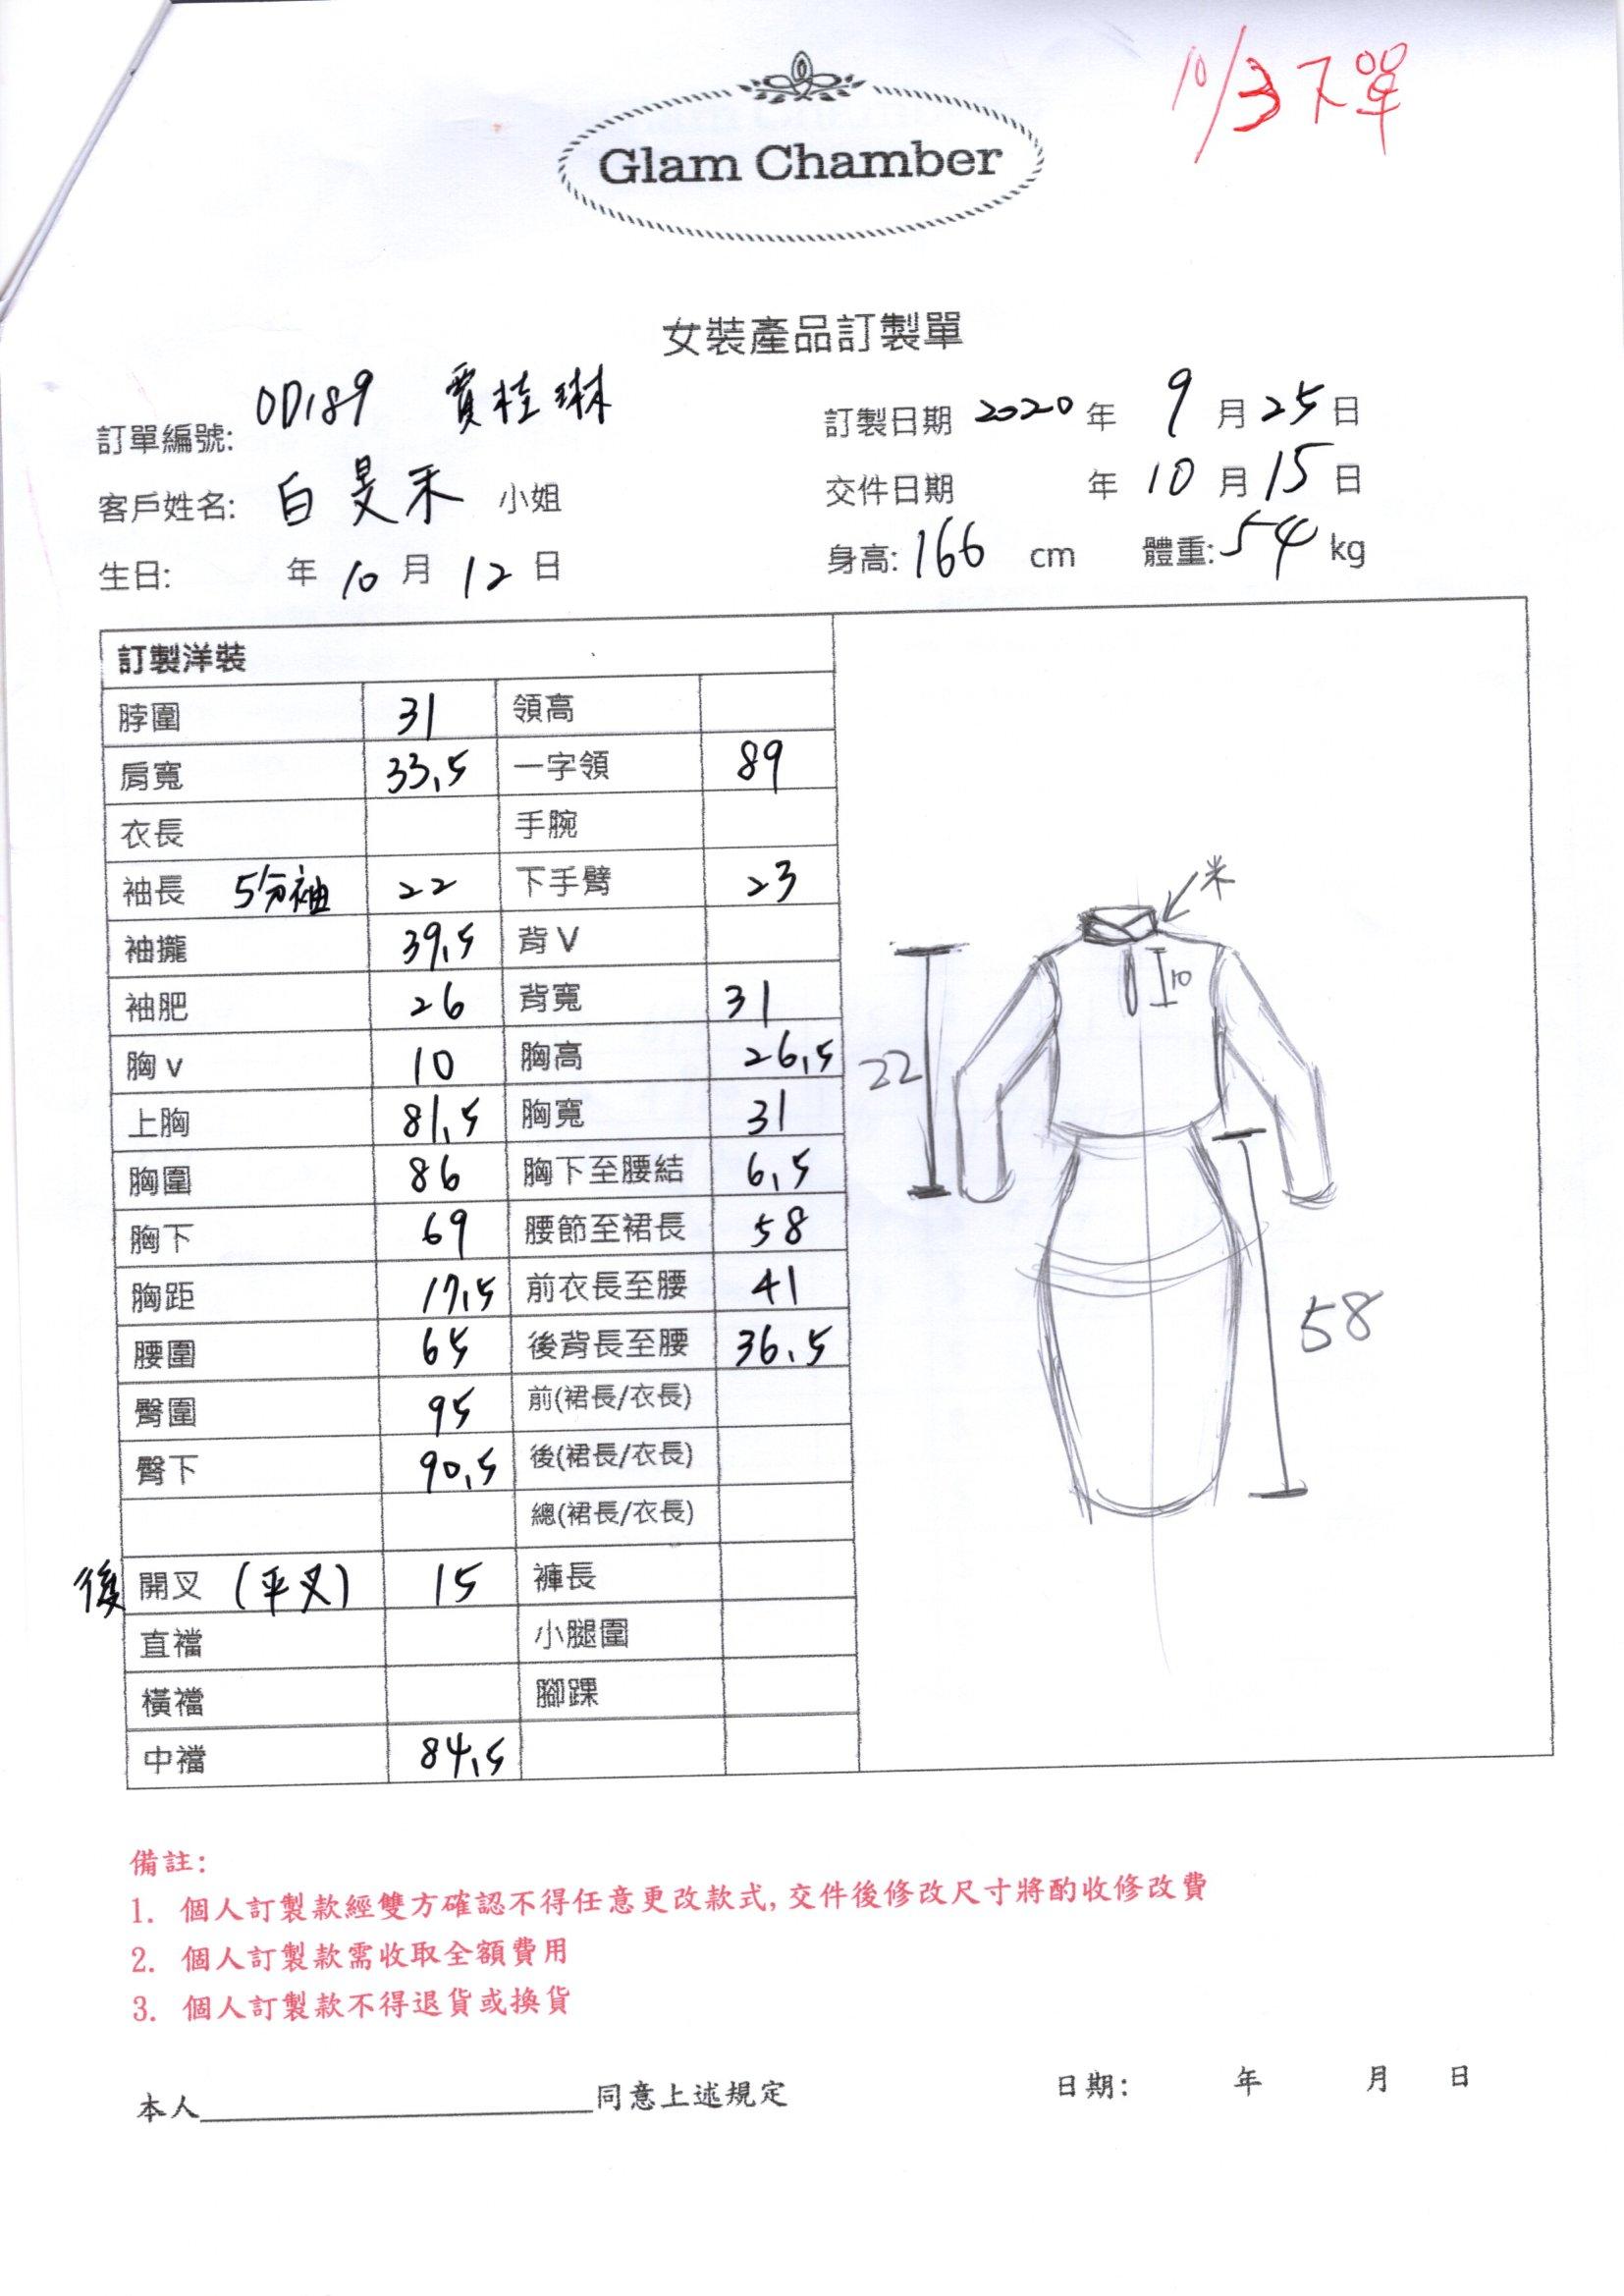 10/3下單
Glam Chamber
女裝產品訂製單
訂單編號: OD189 賈桂琳 訂製日期 2020 年 9 月 25 日
客戶姓名: 白旻禾 小姐 交件日期 年 10 月 15 日
生日: 年 10 月 12 日 身高: 166 cm 體重: 54 kg
訂製洋裝
脖圍 31 領高
肩寬 33.5 一字領 89
衣長 手腕
袖長 5分袖 22 下手臂 23
袖攏 39.5 背 V
袖肥 26 背寬 31
胸 v 10 胸高 26.5
上胸 81.5 胸寬 31
胸圍 86 胸下至腰結 6.5
胸下 69 腰節至裙長 58
胸距 17.5 前衣長至腰 41
腰圍 65 後背長至腰 36.5
臀圍 95 前(裙長/衣長)
臀下 90.5 後(裙長/衣長)
總(裙長/衣長)
後 開叉 (平叉) 15 褲長
直襠 小腿圍
橫襠 腳踝
中襠 84.5
米
10
22
58
備註:
1. 個人訂製款經雙方確認不得任意更改款式, 交件後修改尺寸將酌收修改費
2. 個人訂製款需收取全額費用
3. 個人訂製款不得退貨或換貨
本人____________________同意上述規定 日期: 年 月 日